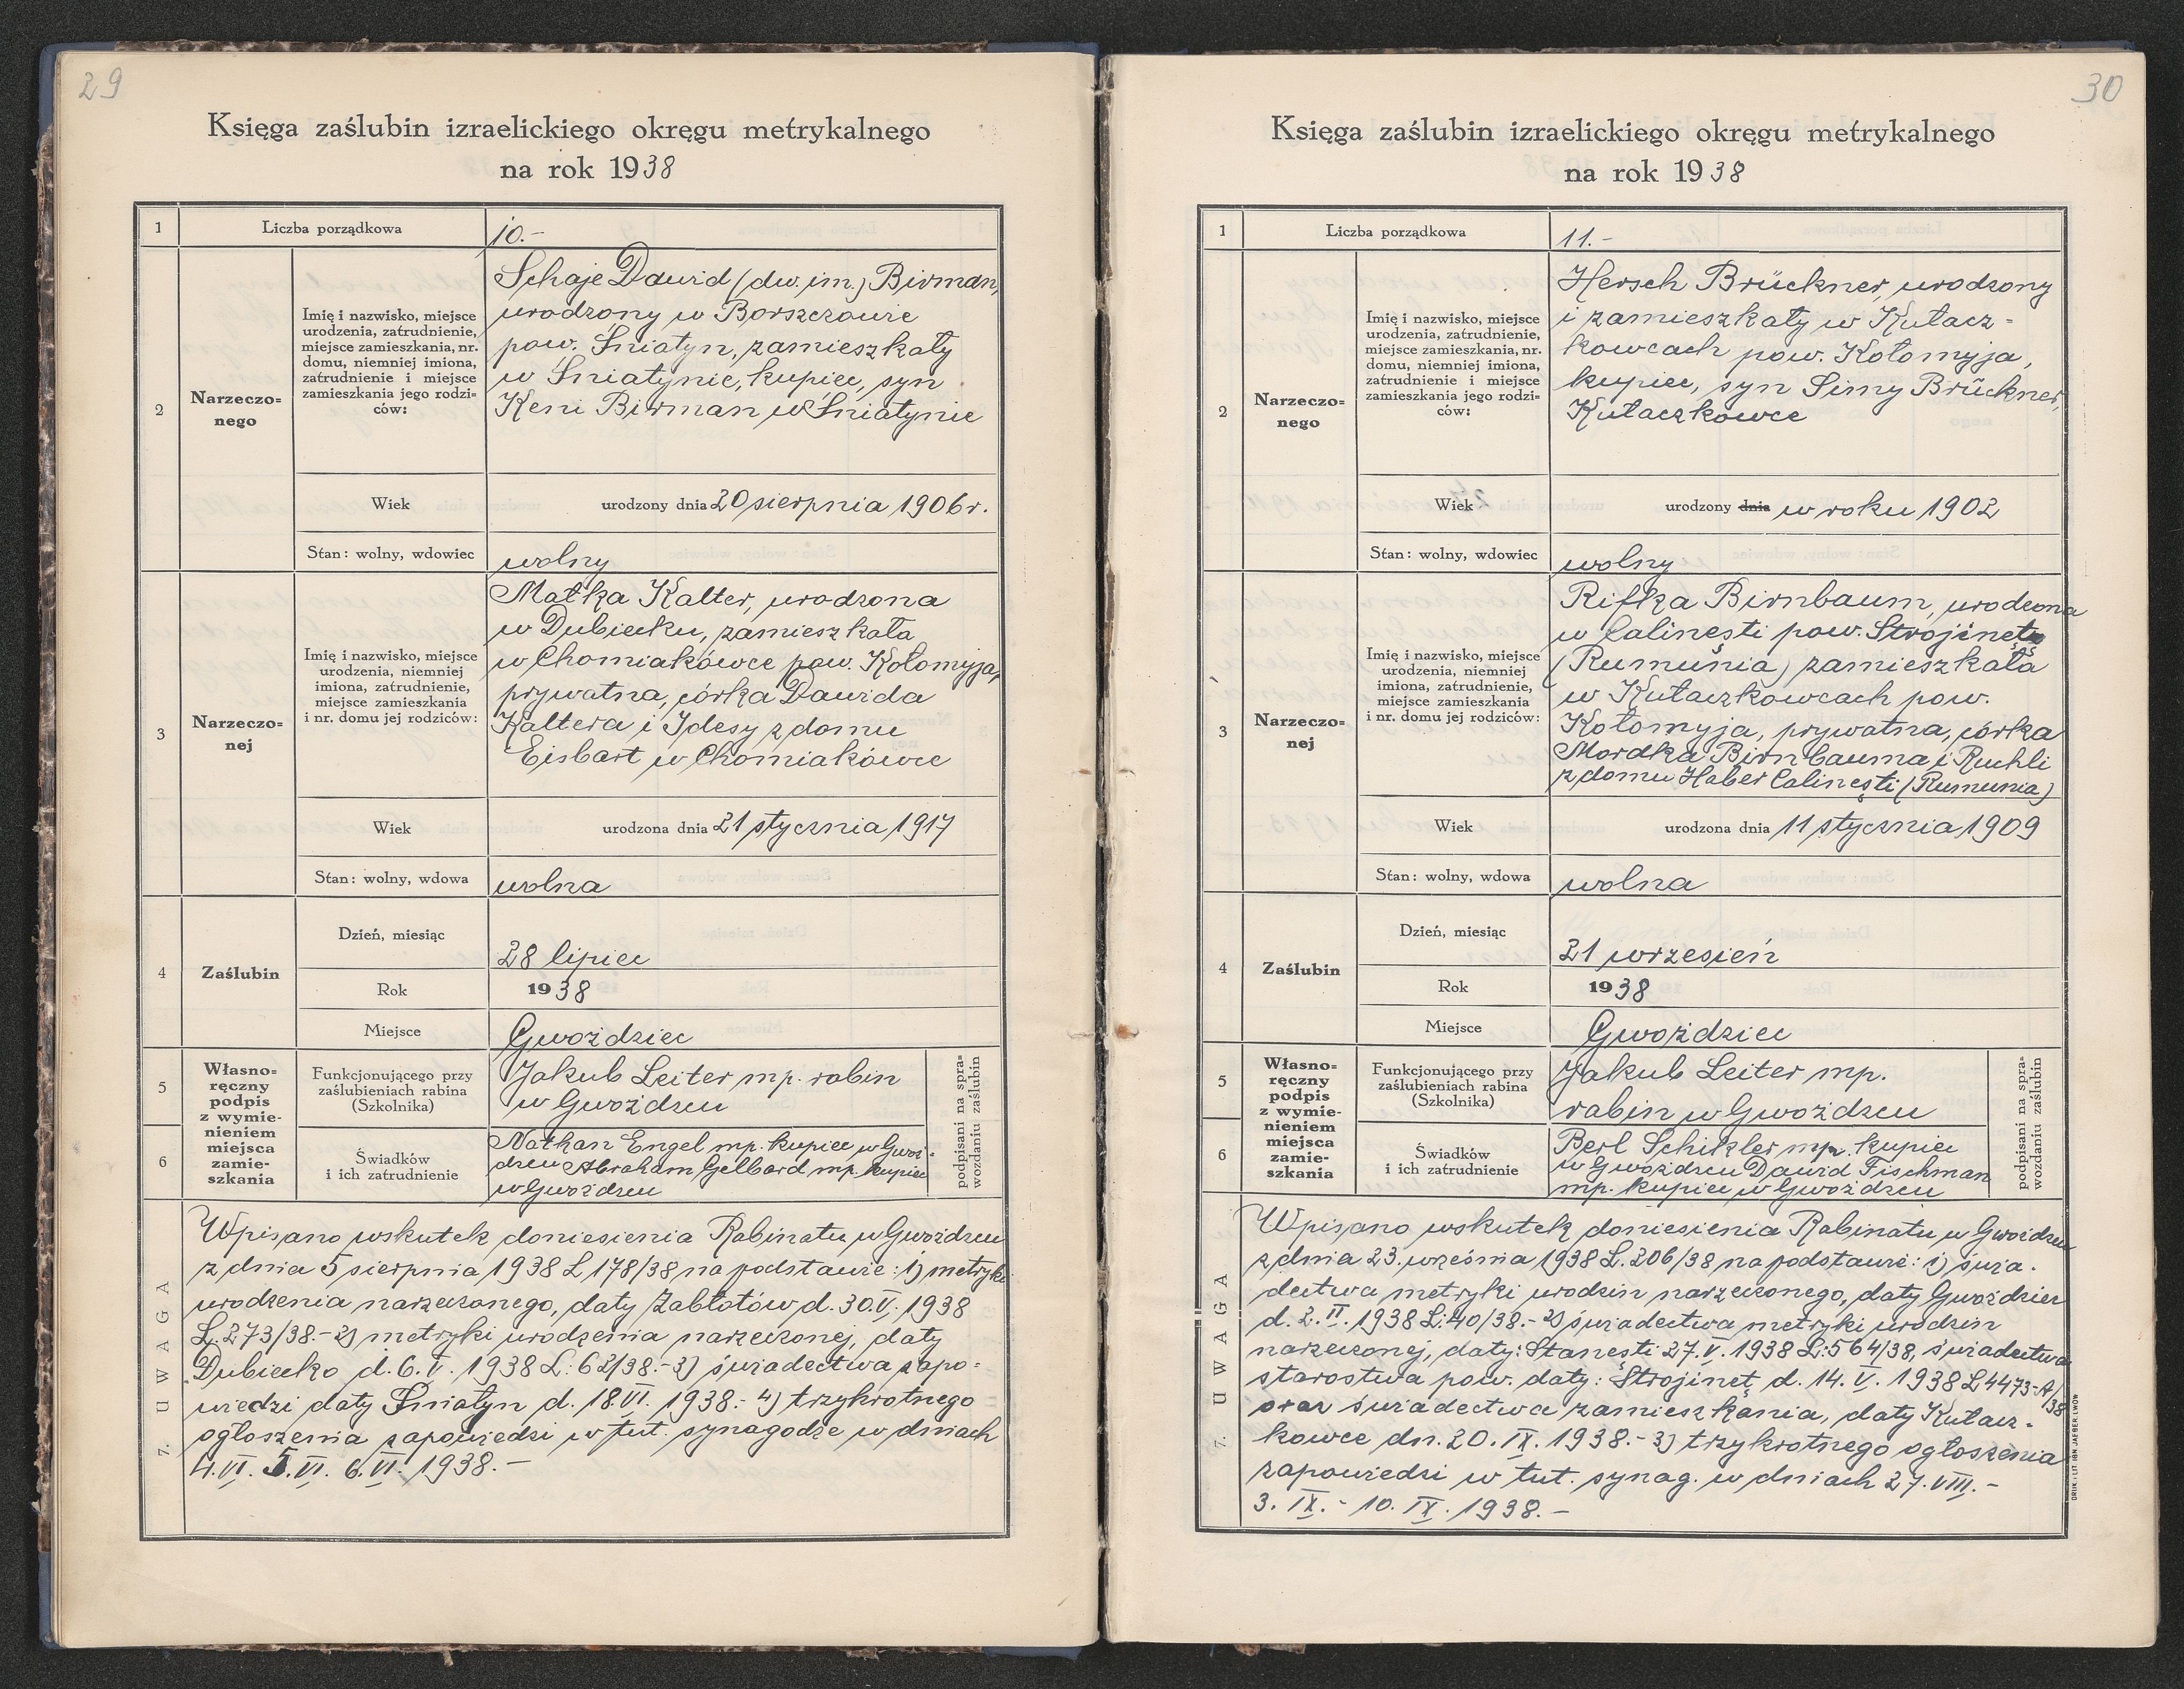 29
Księga zaślubin izraelickiego okręgu metrykalnego
na rok 1938
1
Liczba porządkowa
10.-
2
Narzeczo=
nego
Imię i nazwisko, miejsce
urodzenia, zatrudnienie,
miejsce zamieszkania, nr.
domu, niemniej imiona,
zatrudnienie i miejsce
zamieszkania jego rodzi=
ców:
Schaje Dawid (dw. im.) Birman,
urodzony w Borszczowie
pow. Śniatyn, zamieszkały
w Śniatynie, kupiec, syn
Keni Birman w Śniatynie
Wiek
urodzony dnia 20 sierpnia 1906 r.
Stan: wolny, wdowiec
wolny
3
Narzeczo=
nej
Imię i nazwisko, miejsce
urodzenia, niemniej
imiona, zatrudnienie,
miejsce zamieszkania
i nr. domu jej rodziców:
Matka Kalter, urodzona
w Dubiecku, zamieszkała
w Chomiakówce pow. Kołomyja,
prywatna, córka Dawida
Kaltera i Idesy z domu
Eisbart w Chomiakówce
Wiek
urodzona dnia 21 stycznia 1917
Stan: wolny, wdowa
wolna
4
Zaślubin
Dzień, miesiąc
28 lipiec
Rok
1938
Miejsce
Gwoździec
5
6
Własno=
ręczny
podpis
z wymie=
nieniem
miejsca
zamie=
szkania
Funkcjonującego przy
zaślubieniach rabina
(Szkolnika)
Jakub Leiter mp. rabin
w Gwoźdzcu
Świadków
i ich zatrudnienie
Nathan Engel mp. kupiec w Gwoź=
dzcu Abraham Gelbard mp. kupiec
w Gwoźdzcu
podpisani na spra=
wozdaniu zaślubin
7. UWAGA
Wpisano wskutek doniesienia Rabinatu w Gwoźdzcu
z dnia 5 sierpnia 1938 L 178/38 na podstawie: 1) metryki
urodzenia narzeczonego, daty Zabłotów d. 30.V. 1938
L. 273/38.- 2) metryki urodzenia narzeczonej, daty
Dubiecko d. 6.V. 1938 L: 62/38.- 3) świadectwa zapo=
wiedzi daty Śniatyn d. 18.VI. 1938.- 4) trzykrotnego
ogłoszenia zapowiedzi w tut. synagodze w dniach
4.VI. 5.VI. 6.VI. 1938.-
30
Księga zaślubin izraelickiego okręgu metrykalnego
na rok 1938
1
Liczba porządkowa
11.-
2
Narzeczo=
nego
Imię i nazwisko, miejsce
urodzenia, zatrudnienie,
miejsce zamieszkania, nr.
domu, niemniej imiona,
zatrudnienie i miejsce
zamieszkania jego rodzi=
ców:
Hersch Brückner, urodzony
i zamieszkały w Kułacz=
kowcach pow. Kołomyja,
kupiec, syn Simy Brückner,
Kułaczkowce
Wiek
urodzony dnia w roku 1902
Stan: wolny, wdowiec
wolny
3
Narzeczo=
nej
Imię i nazwisko, miejsce
urodzenia, niemniej
imiona, zatrudnienie,
miejsce zamieszkania
i nr. domu jej rodziców:
Rifka Birnbaum, urodzona
w Calineşti pow. Strojineţ
(Rumunia) zamieszkała
w Kułaczkowcach pow.
Kołomyja, prywatna, córka
Mordka Birnbauma i Ruchli
z domu Haber Calineşti (Rumunia)
Wiek
urodzona dnia 11 stycznia 1909
Stan: wolny, wdowa
wolna
4
Zaślubin
Dzień, miesiąc
21 wrzesień
Rok
1938
Miejsce
Gwoździec
5
6
Własno=
ręczny
podpis
z wymie=
nieniem
miejsca
zamie=
szkania
Funkcjonującego przy
zaślubieniach rabina
(Szkolnika)
Jakub Leiter mp.
rabin w Gwoźdzcu
Świadków
i ich zatrudnienie
Berl Schikler mp. kupiec
w Gwoźdzcu Dawid Fischman
mp. kupiec w Gwoźdzcu
podpisani na spra=
wozdaniu zaślubin
7. UWAGA
Wpisano wskutek doniesienia Rabinatu w Gwoźdzcu
z dnia 23. września 1938 L. 206/38 na podstawie: 1) świa-
dectwa metryki urodzin narzeczonego, daty Gwoździec
d. 2.II. 1938 L: 40/38.- 2) świadectwa metryki urodzin
narzeczonej, daty: Stanesti 27.V. 1938 L: 564/38, świadectwa
starostwa pow. daty: Strojineţ d. 14.V. 1938 L 4473-A/38
oraz świadectwa zamieszkania, daty Kułacz-
kowce dn. 20.IX. 1938.- 3) trzykrotnego ogłoszenia
zapowiedzi w tut. synag. w dniach 27.VIII.-
3. IX.- 10. IX. 1938.-